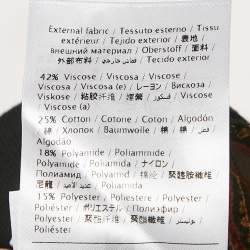 External fabric / Tessuto esterno / Tissu
extérieur / Tejido exterior / 表地 /
внешний материал / Oberstoff / 面料 /
外部布料 / Tecido exterior /
42% Viscose / Viscosa / Viscose /
Viscosa / Viscosa (e) / レーヨン / Вискоза /
Viskose / 粘胶纤维 /
Viscose (a)
25% Cotton / Cotone / Coton / Algodón
/ 綿 / Хлопок / Baumwolle / 棉 / 棉 /
Algodão
18% Polyamide / Poliammide /
Polyamide / Poliamida / ナイロン /
Полиамид / Polyamid / 锦纶 / 聚醯胺纖維 /
尼龍 / Poliamida
15% Polyester / Poliestere /
Polyester / Poliéster / ポリエステル / Полиэфир /
Polyester / 聚酯纤维 / 聚酯纖維 /
Poliéster